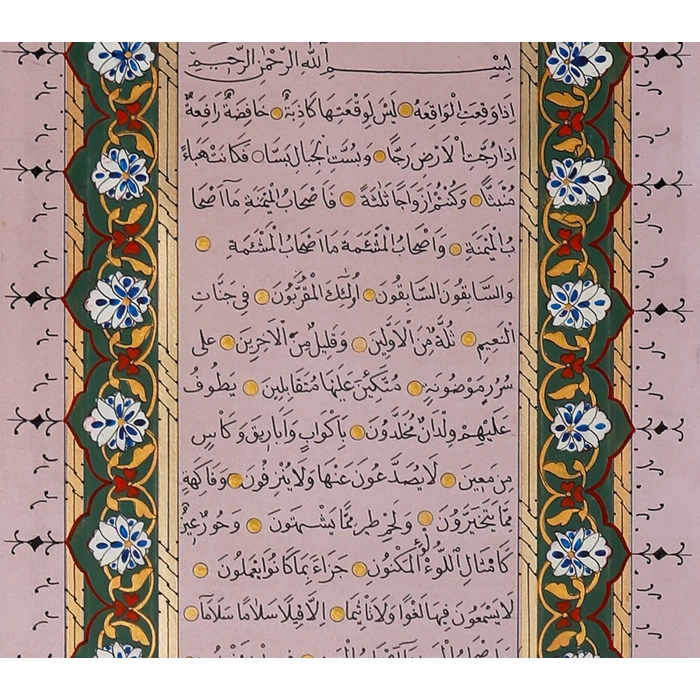 بسم الله الرحمن الرحيم
اذا وقعت الواقعة ليس لوقعتها كاذبة خافضة رافعة
اذا رجت الارض رجا وبست الجبال بسا فكانت هباء
منبثا وكنتم ازواجا ثلثة فاصحاب الميمنة ما اصحا
ب الميمنة واصحاب المشئمة ما اصحاب المشئمة
والسابقون السابقون اولئك المقربون فى جنات
النعيم ثلة من الاولين وقليل من الاخرين على
سرر موضونة متكئين عليها متقابلين يطوف
عليهم ولدان مخلدون باكواب واباريق وكأس
من معين لا يصدعون عنها ولا ينزفون وفاكهة
مما يتخيرون ولحم طير مما يشتهون وحور عين
كامثال اللؤلؤ المكنون جزاء بما كانوا يعملون
لا يسمعون فيها لغوا ولا تاثيما الا قيلا سلاما سلاما